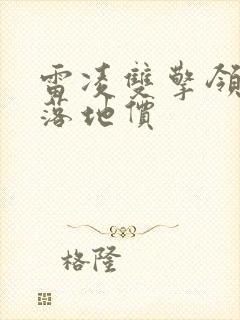 雷凌雙擎領
落地價
格隆